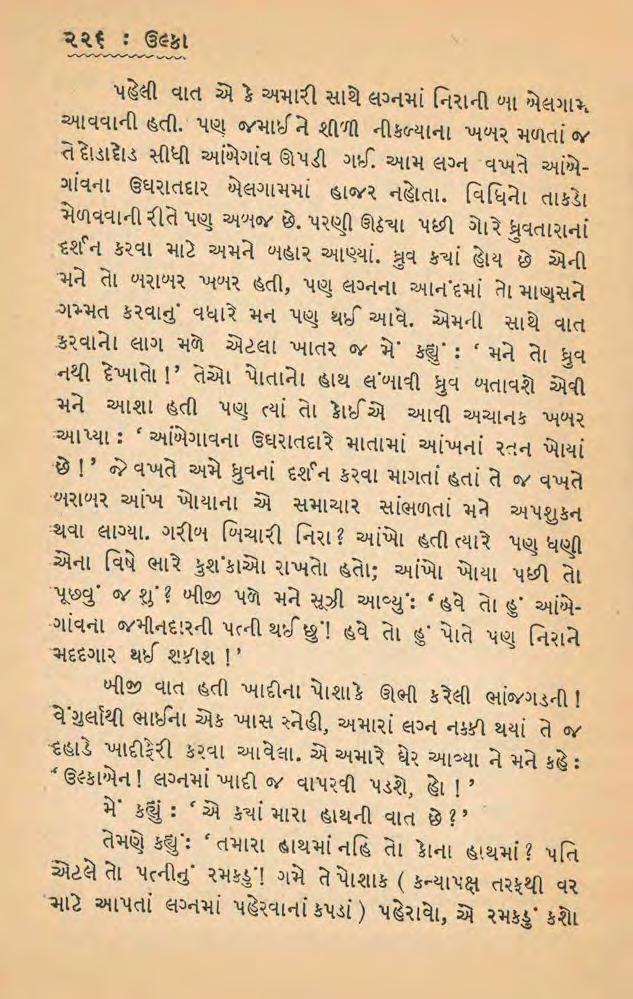 ૨૨૬ : ઉલ્કા
પહેલી વાત એ કે અમારી સાથે લગ્નમાં નિરાની બા બેલગામ
આવવાની હતી. પણ જમાઈને શીળી નીકળ્યાના ખબર મળતાં જ
તે દોડાદોડ સીધી આંબેગાંવ ઊપડી ગઈ. આમ લગ્ન વખતે આંબે-
ગાંવના ઉઘરાતદાર બેલગામમાં હાજર નહોતા. વિધિનો તાકડો
મેળવવાની રીતે પણ અબજ છે. પરણી ઊઠ્યા પછી ગોરે ધ્રુવતારાનાં
દર્શન કરવા માટે અમને બહાર આણ્યાં. ધ્રુવ ક્યાં હોય છે એની
મને તો બરાબર ખબર હતી, પણ લગ્નના આનંદમાં તો માણસને
ગમ્મત કરવાનું વધારે મન પણ થઈ આવે. એમની સાથે વાત
કરવાનો લાગ મળે એટલા ખાતર જ મેં કહ્યું : ‘ મને તો ધ્રુવ
નથી દેખાતો !’ તેઓ પોતાનો હાથ લંબાવી ધ્રુવ બતાવશે એવી
મને આશા હતી પણ ત્યાં તો કોઈએ આવી અચાનક ખબર
આપ્યા : ‘ આંબેગાવના ઉઘરાતદારે માતામાં આંખનાં રતન ખોયાં
છે !’ જે વખતે અમે ધ્રુવનાં દર્શન કરવા માગતાં હતાં તે જ વખતે
બરાબર આંખ ખોયાના એ સમાચાર સાંભળતાં મને અપશુકન
થવા લાગ્યા. ગરીબ બિચારી નિરા? આંખો હતી ત્યારે પણ ધણી
એના વિષે ભારે કુશંકાઓ રાખતો હતો; આંખો ખોયા પછી તો
પૂછવું જ શું ? બીજી પળે મને સૂઝી આવ્યું : ‘ હવે તો હું આંબે-
ગાંવના જમીનદારની પત્ની થઈ છું! હવે તો હું પોતે પણ નિરાને
મદદગાર થઈ શકીશ !’
બીજી વાત હતી ખાદીના પોશાકે ઊભી કરેલી ભાંજગડની !
વેંગુર્લાથી ભાઈના એક ખાસ સ્નેહી, અમારાં લગ્ન નક્કી થયાં તે જ
દહાડે ખાદીફેરી કરવા આવેલા. એ અમારે ઘેર આવ્યા ને મને કહે :
‘ ઉલ્કાબેન ! લગ્નમાં ખાદી જ વાપરવી પડશે, હો !’
મેં કહ્યું : ‘ એ ક્યાં મારા હાથની વાત છે ?’
તેમણે કહ્યું : ‘ તમારા હાથમાં નહિ તો કોના હાથમાં ? પતિ
એટલે તો પત્નીનું રમકડું! ગમે તે પોશાક ( કન્યાપક્ષ તરફથી વર
માટે આપતાં લગ્નમાં પહેરવાનાં કપડાં ) પહેરાવો, એ રમકડું કશો